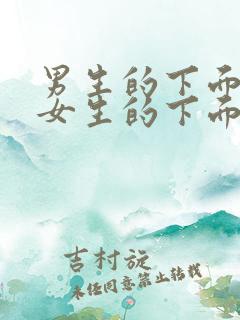 男生的下面
女生的下面
吉村旋
未经同意禁止转载